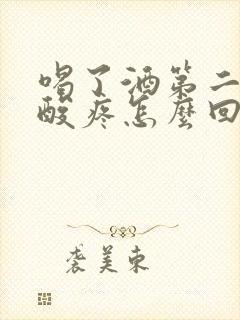 喝了酒第二
酸疼怎麼回
裘美東